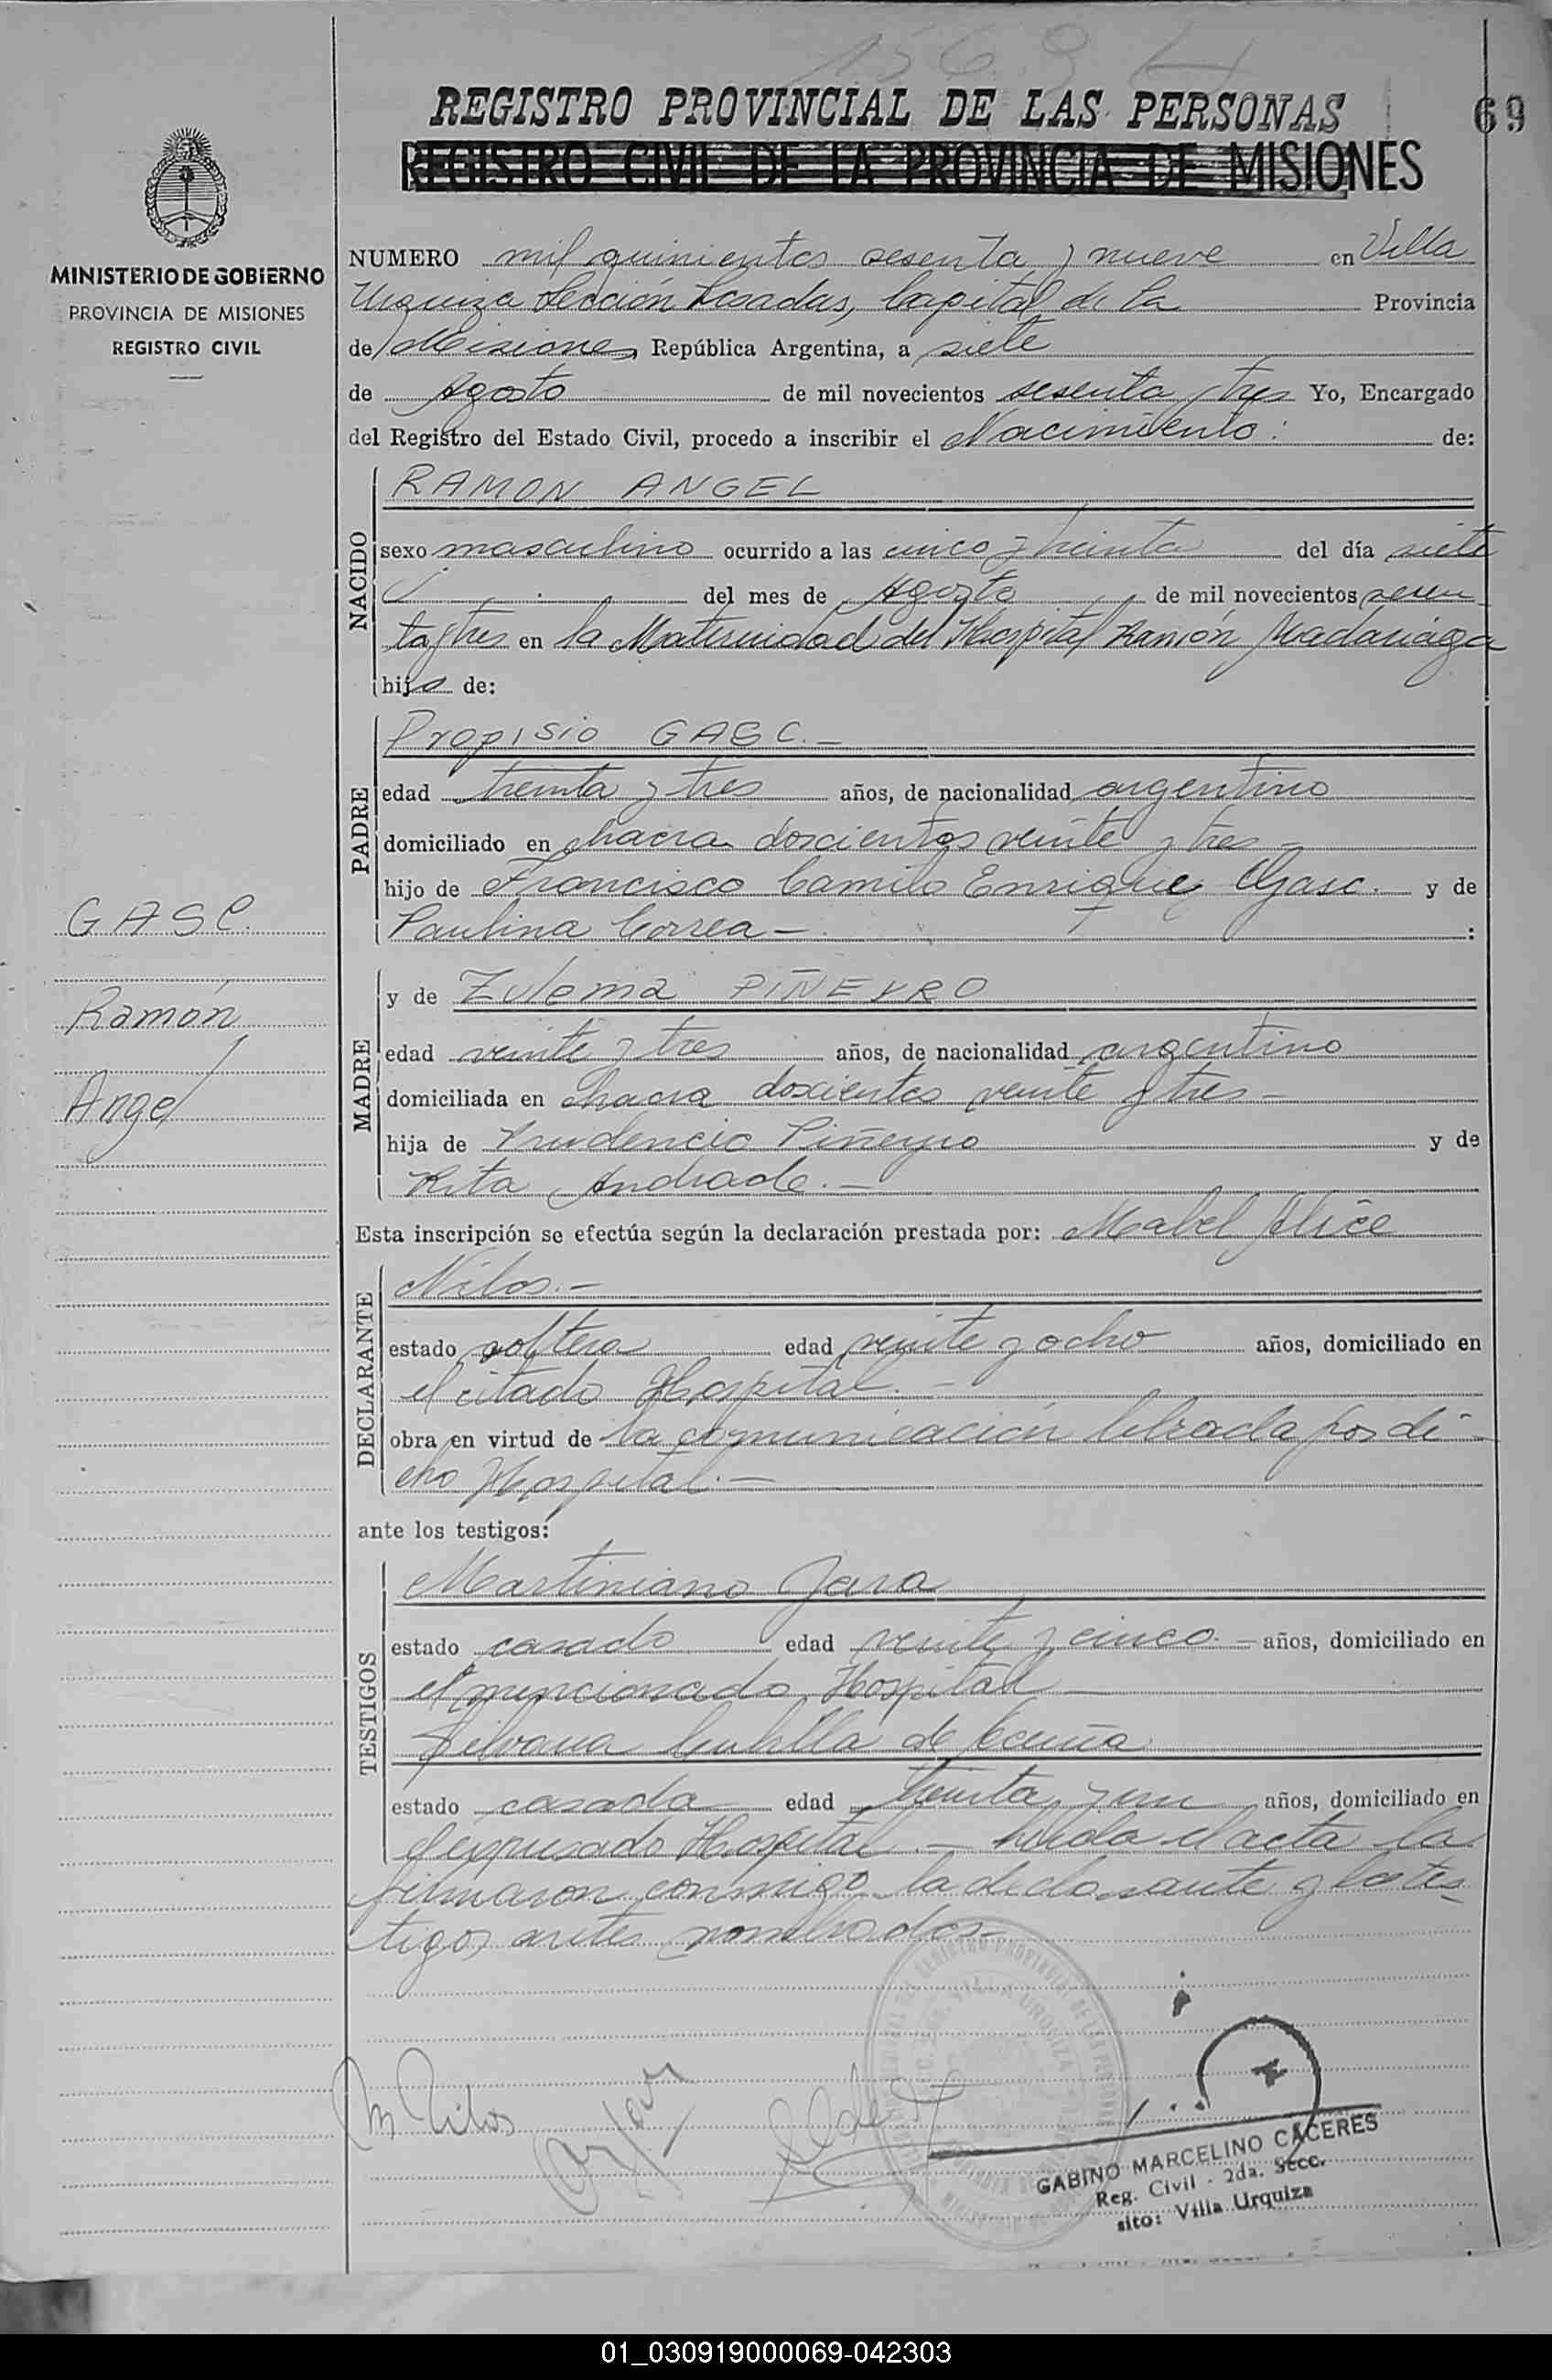 1569
REGISTRO PROVINCIAL DE LAS PERSONAS
69
REGISTRO CIVIL DE LA PROVINCIA DE MISIONES
MINISTERIO DE GOBIERNO
PROVINCIA DE MISIONES
REGISTRO CIVIL
NUMERO mil quinientos sesenta y nueve en Villa
Urquiza Sección Posadas, Capital de la Provincia
de Misiones, República Argentina, a siete
de Agosto de mil novecientos sesenta y tres Yo, Encargado
del Registro del Estado Civil, procedo a inscribir el Nacimiento: de:
NACIDO
RAMON ANGEL
sexo masculino ocurrido a las cinco y treinta del día siete
del mes de Agosto de mil novecientos sesen
ta y tres en la Maternidad del Hospital Ramón Madariaga
hijo de:
PADRE
Propisio GASC.-
edad treinta y tres años, de nacionalidad argentino
domiciliado en chacra doscientos veinte y tres -
hijo de Francisco Camilo Enrique Gasc. y de
Paulina Correa - :
GASC.
Ramón
Angel
MADRE
y de Zulema PIÑEYRO
edad veinte y tres años, de nacionalidad argentino
domiciliada en chacra doscientos veinte y tres -
hija de Prudencio Piñeyro y de
Rita Andrade. -
Esta inscripción se efectúa según la declaración prestada por: Mabel Alice
DECLARANTE
Nilos. -
estado soltera edad veinte y ocho años, domiciliado en
el citado Hospital. -
obra en virtud de la comunicación librada por di-
cho Hospital. -
ante los testigos:
TESTIGOS
Martiniano Jara
estado casado edad veinte y cinco - años, domiciliado en
el mencionado Hospital
Silvana de
estado casada edad treinta y un años, domiciliado en
el expresado Hospital. - leída el acta la
firmaron conmigo la declarante y los tes-
tigos antes nombrados-
M Nilos
GABINO MARCELINO CACERES
Reg. Civil - 2da. Secc.
sito: Villa Urquiza
01_030919000069-042303